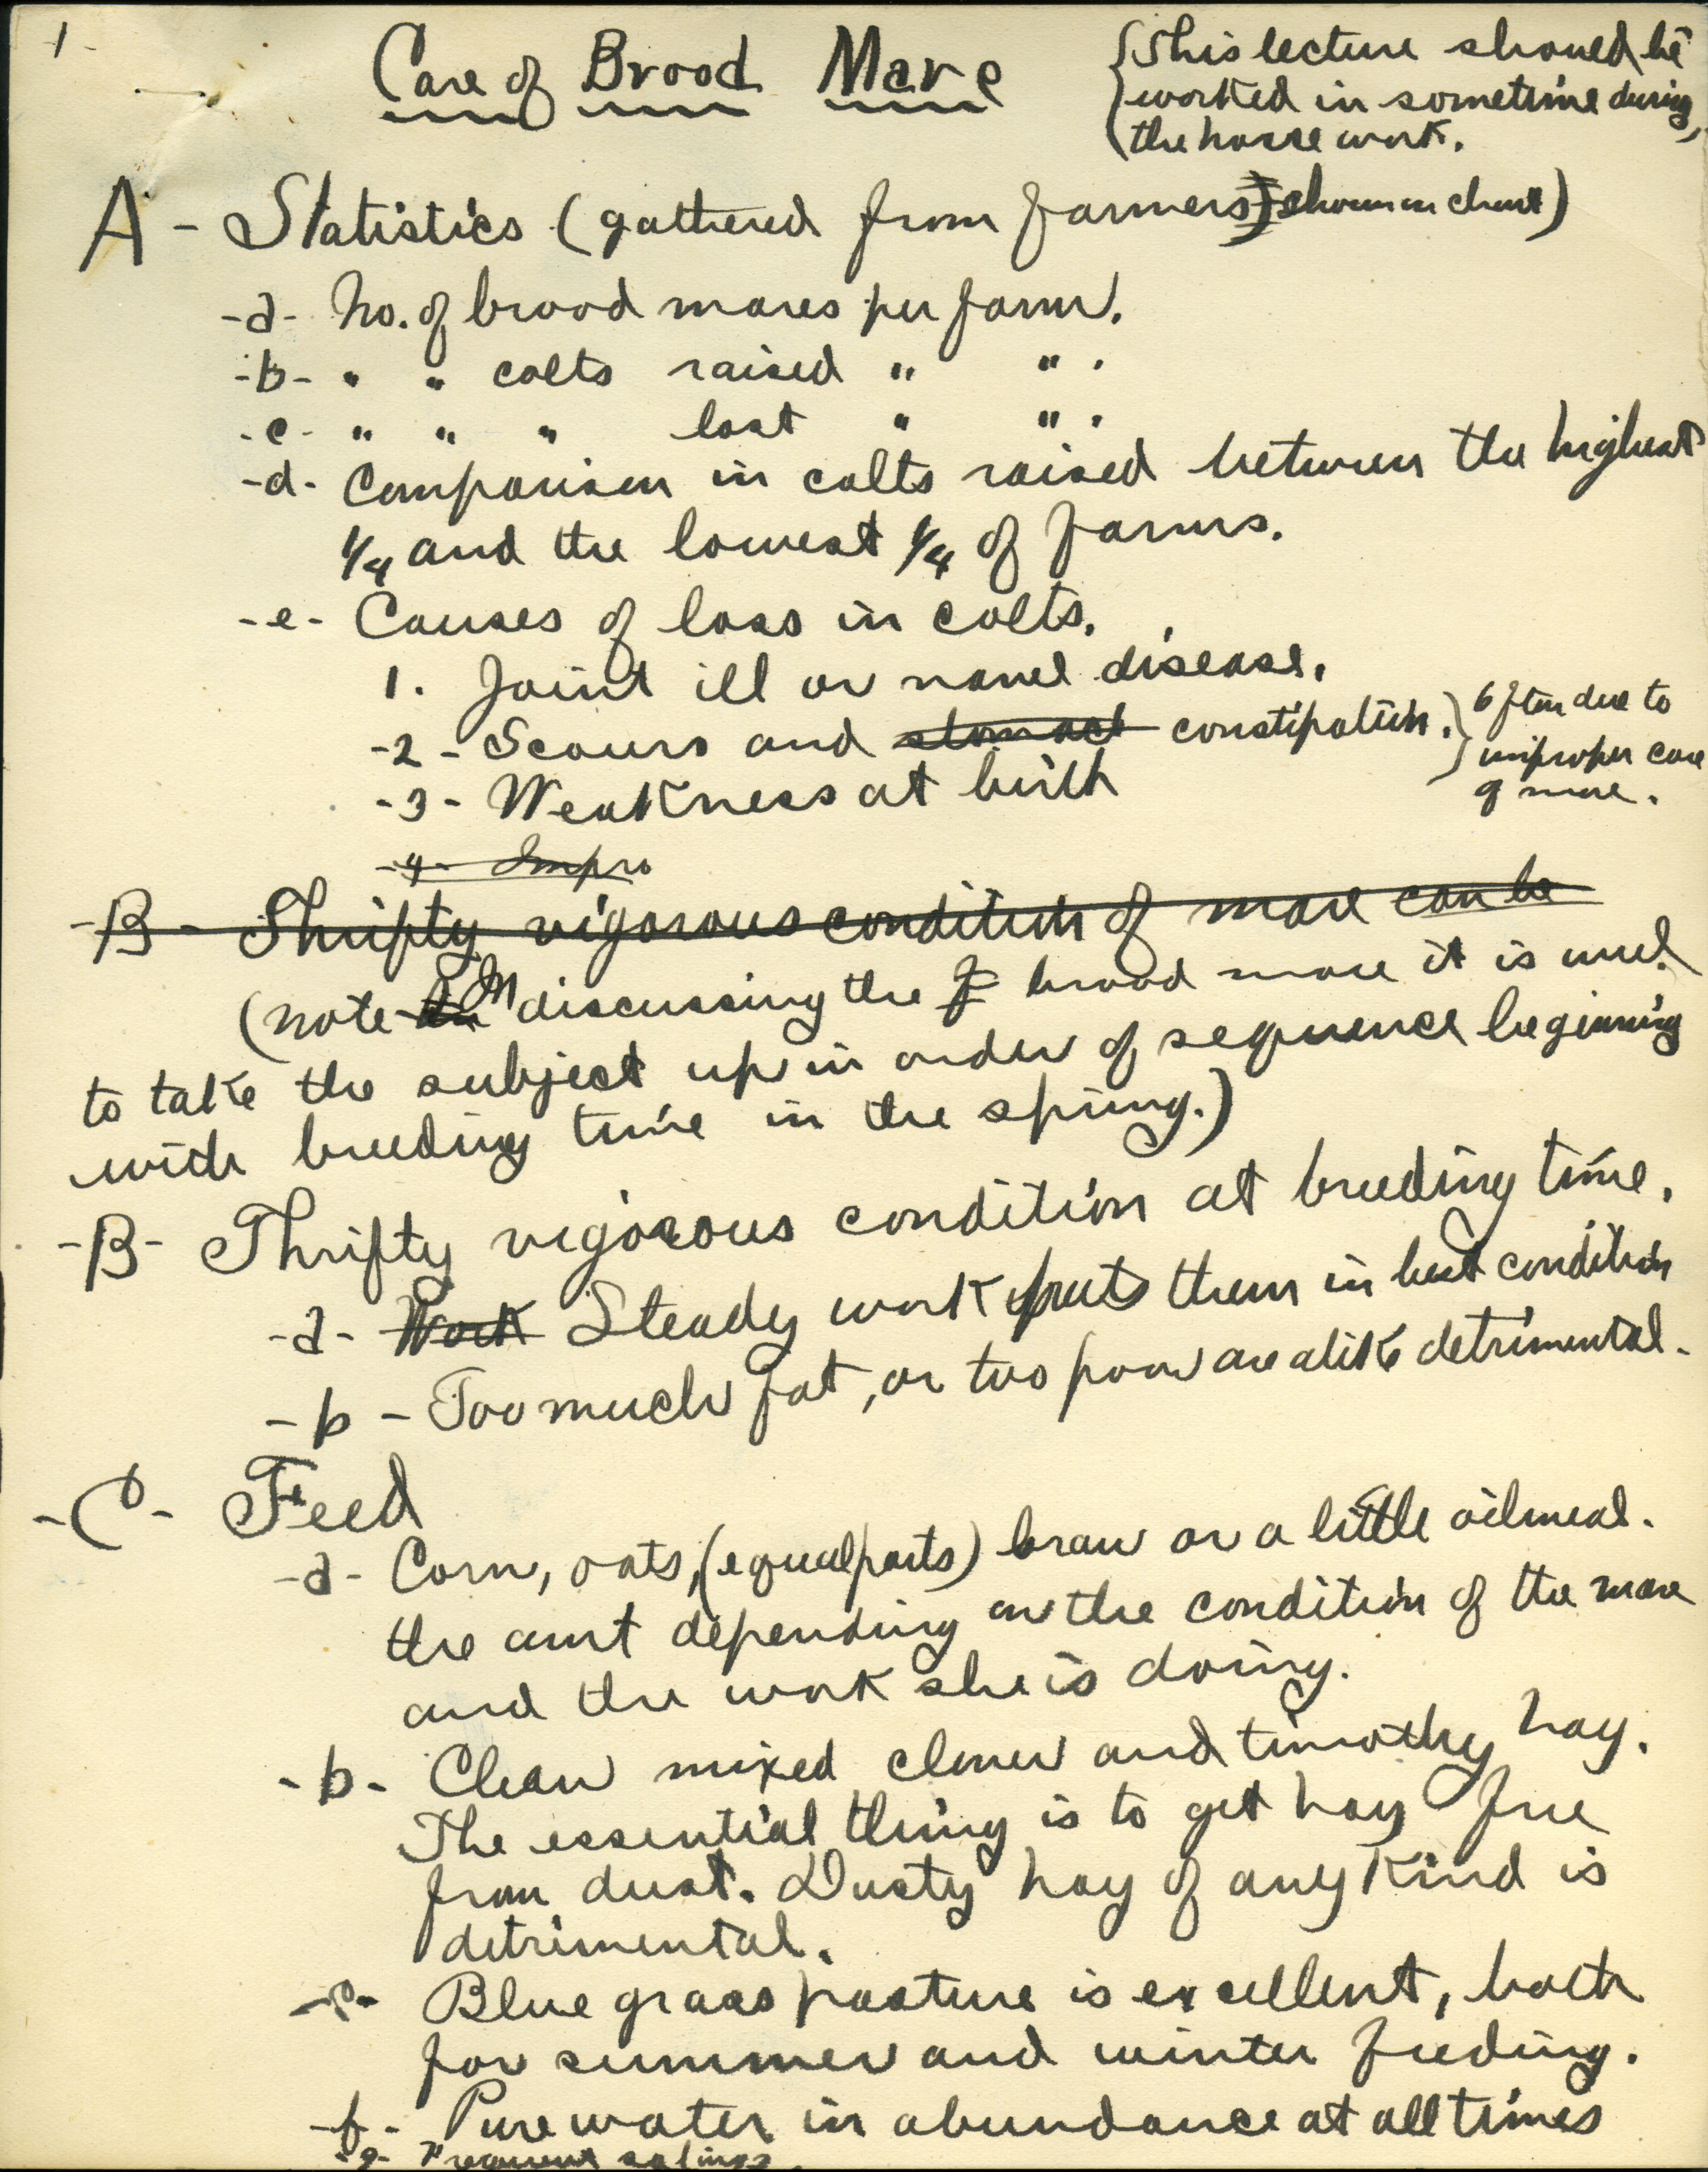 1-
Care of Brood Mare
{This lecture should be
worked in sometime during
the horse work.
A - Statistics (gathered from farmers) shown on chart)
-a- No. of brood mares per farm.
-b- " " colts raised " " .
-c- " " " lost " " .
-d- Comparison in colts raised between the highest
1/4 and the lowest 1/4 of farms.
-e- Causes of loss in colts.
1. Joint ill or navel disease.
-2- Scours and stomach constipation. } Often due to
improper care
of mare.
-3- Weakness at birth
-4- Impro
-B- Thrifty vigorous condition of mare can be
(note In discussing the f brood mare it is well
to take the subject up in order of sequence beginning
with breeding time in the spring.)
-B- Thrifty vigorous condition at breeding time.
-a- Work Steady work puts them in best condition
-b- Too much fat, or too poor are alike detrimental.
-C- Feed
-a- Corn, oats, (equal parts) bran or a little oilmeal.
the amt depending on the condition of the mare
and the work she is doing.
-b- Clean mixed clover and timothy hay.
The essential thing is to get hay free
from dust. Dusty hay of any kind is
detrimental.
-c- Blue grass pasture is excellent, both
for summer and winter feeding.
-f- Pure water in abundance at all times
-g- Frequent salings.